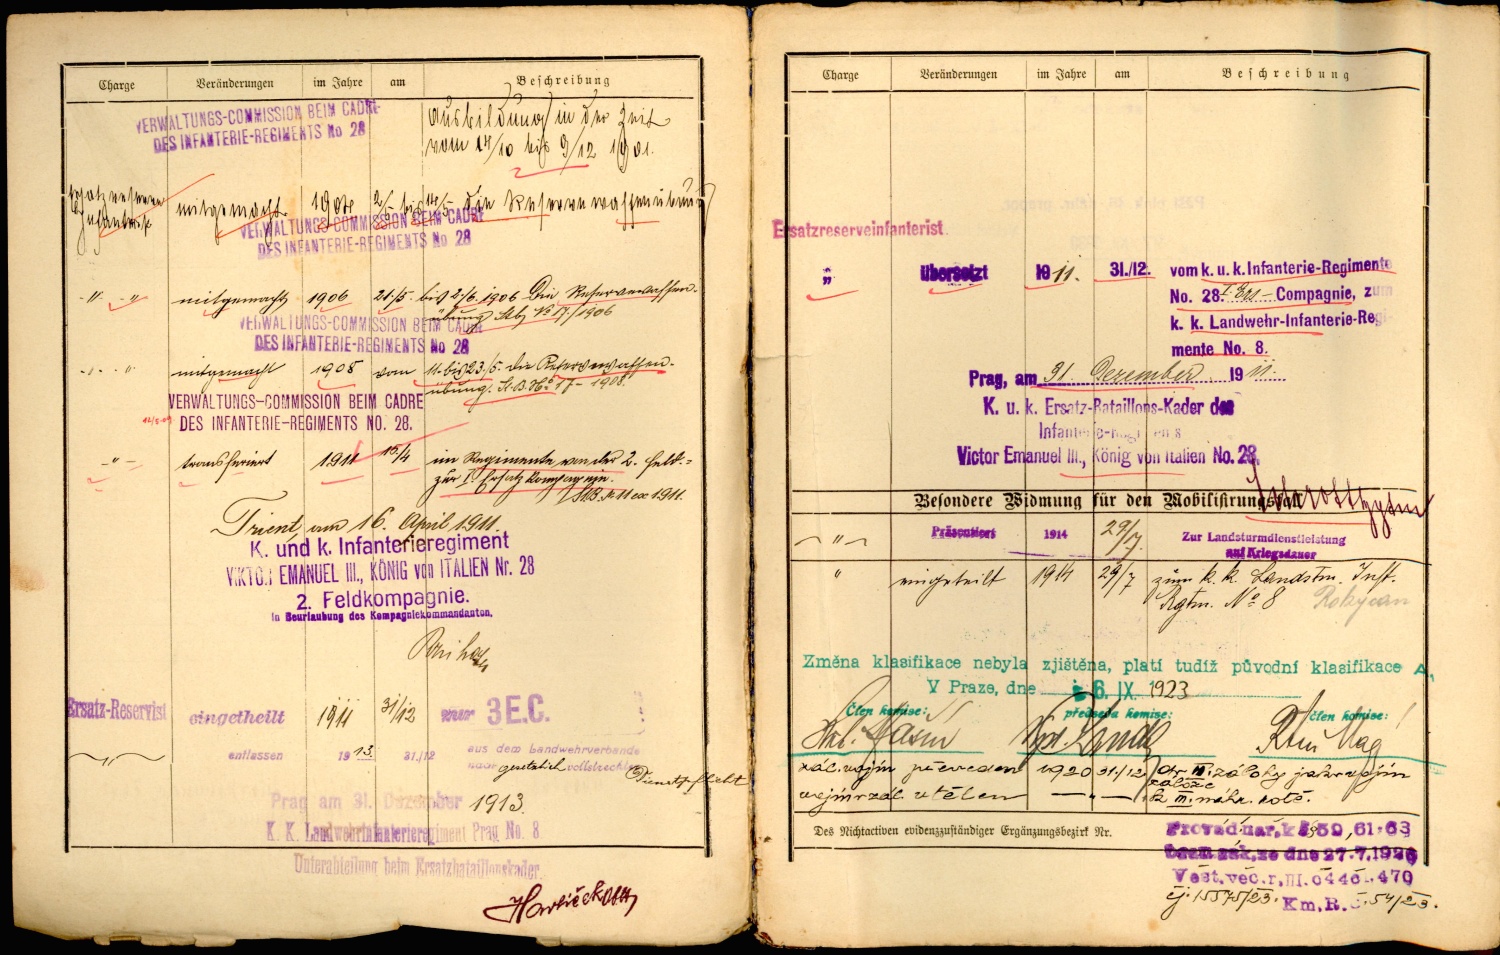 Charge Veränderungen im Jahre am Beschreibung
VERWALTUNGS-COMMISSION BEIM CADRE
DES INFANTERIE-REGIMENTS No 28
Ausbildung in der Zeit
vom 14/10 bis 9/12 1901.
Ersatzreserve
Infanterist
mitgemacht 1904 2/5 bis 14/5 die Reservewaffenübung
VERWALTUNGS-COMMISSION BEIM CADRE
DES INFANTERIE-REGIMENTS No 28
-"- -"- mitgemacht 1906 21./5. bis 2/6. 1906 Die Reservewaffen-
übung Stb No 17/1906
VERWALTUNGS-COMMISSION BEIM CADRE
DES INFANTERIE-REGIMENTS No 28
-"- -"- mitgemacht 1908 vom 11. bis 23/5. die Reservewaffen-
übung. St.B.No 17 - 1908.
VERWALTUNGS-COMMISSION BEIM CADRE
DES INFANTERIE-REGIMENTS NO. 28.
-"- transferiert 1911 15/4 im Regimente von der 2. Feld-
zur I. Ersatzkompagnie.
StB. № 11 ex 1911.
Trient, am 16. April 1911.
K. und k. Infanterieregiment
VIKTOR EMANUEL III., KÖNIG von ITALIEN Nr. 28
2. Feldkompagnie.
in Beurlaubung des Kompagniekommandanten.
Ersatz-Reservist eingetheilt 1911 31/12 zur 3 E.C.
entlassen 1913. 31./12 aus dem Landwehrverbande
nach gesetzlich vollstreckter Dienstpflicht
Prag am 31. Dezember 1913.
K. K. Landwehrinfanterieregiment Prag No. 8
Unterabteilung beim Ersatzbataillonskader.
Charge Veränderungen im Jahre am Beschreibung
Ersatzreserveinfanterist.
" übersetzt 1911. 31./12. vom k. u. k. Infanterie-Regimente
No. 28. I. Ers- Compagnie, zum
k. k. Landwehr-Infanterie-Regi-
mente No. 8.
Prag, am 31. Dezember 1911.
K. u. k. Ersatz-Bataillons-Kader des
Infanterie-Regiments
Victor Emanuel III., König von Italien No. 28.
Besondere Widmung für den Mobilisierungsfall
" Präsentiert 1914 29/7. Zur Landsturmdienstleistung
auf Kriegsdauer
" eingeteilt 1914 29/7 zum k. k. Landstm. Inft.
Rgtm. No 8 Rokycan
Změna klasifikace nebyla zjištěna, platí tudíž původní klasifikace A.
V Praze, dne 6. IX. 1923
Člen komise: předseda komise: člen komise:
zál. vojín převeden 1920 31./12.
vojín zál. vtělen - " -
Des Nichtactiven evidenzzuständiger Ergänzungsbezirk Nr.
Provád. nař. k § 59, 61, 63
bran. zák. ze dne 27.7.1920
Věst. věc. r. III. č 446 l. 470
čj. 15575/23. Km. R. č. 54/23.